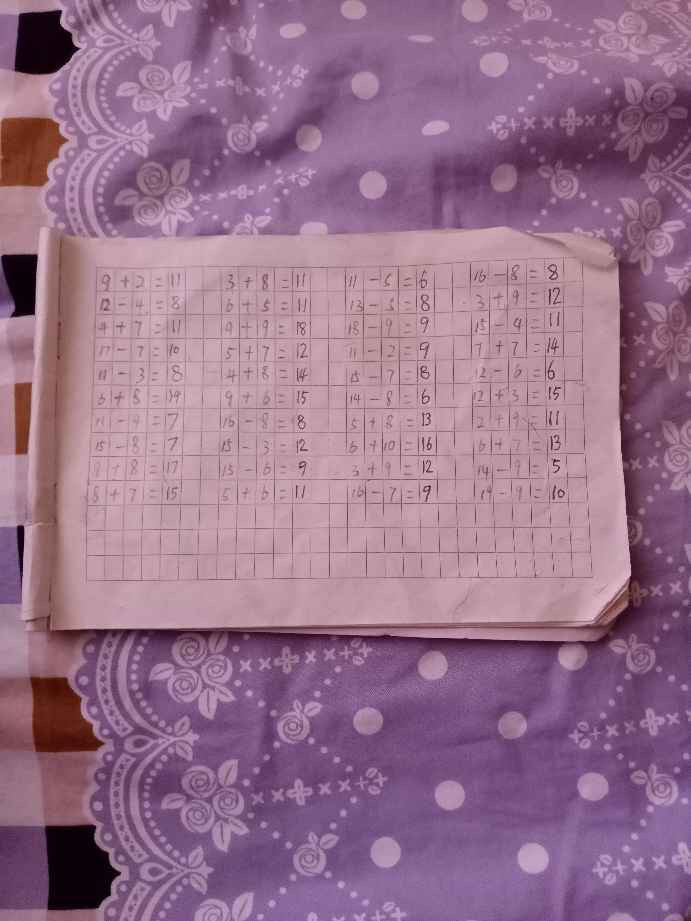 9+2=11 3+8=11 11-5=6 16-8=8
12-4=8 6+5=11 13-5=8 3+9=12
4+7=11 9+9=18 18-9=9 15-4=11
17-7=10 5+7=12 11-2=9 7+7=14
11-3=8 4+8=14 15-7=8 12-6=6
6+8=14 9+6=15 14-8=6 12+3=15
11-4=7 16-8=8 5+8=13 2+9=11
15-8=7 15-3=12 6+10=16 6+7=13
9+8=17 15-6=9 3+9=12 14-9=5
8+7=15 5+6=11 16-7=9 19-9=10